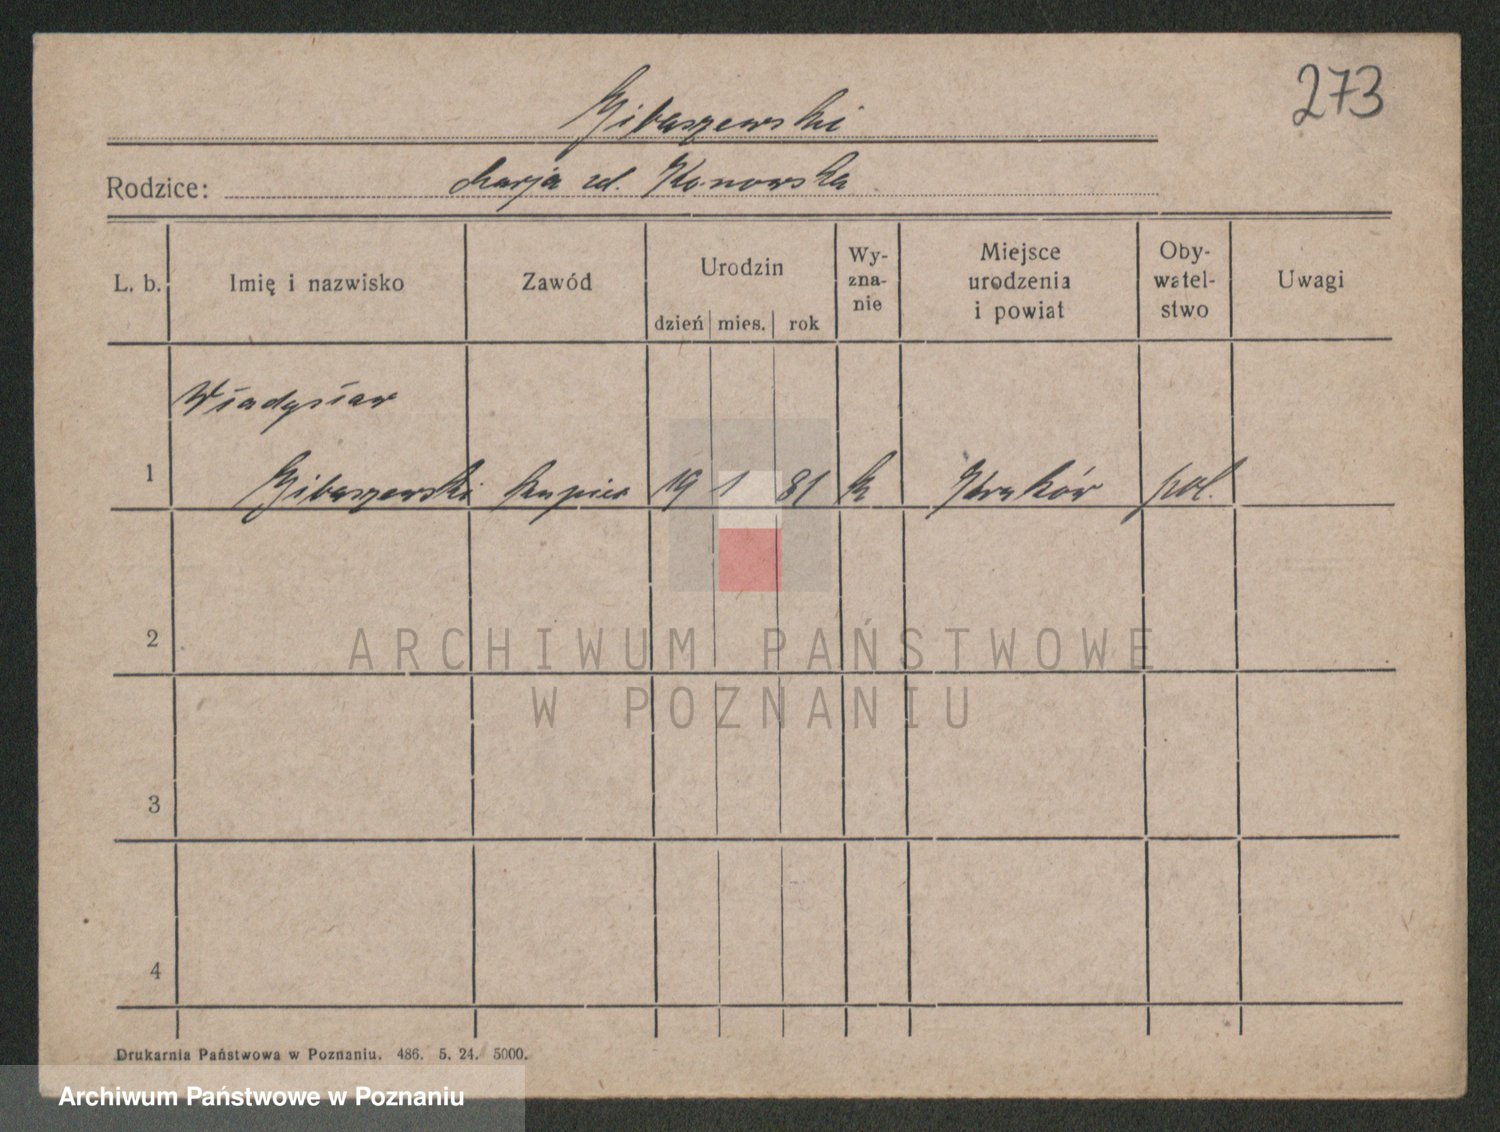 273
Gibaszewski
Rodzice: Marja zd. Konowska
L. b. Imię i nazwisko Zawód Urodzin dzień mies. rok Wy-zna-nie Miejsce urodzenia i powiat Oby-watel-stwo Uwagi
Władysław
1 Gibaszewski kupiec 19 1 81 k Kraków pol.
2
ARCHIWUM PAŃSTWOWE
W POZNANIU
3
4
Drukarnia Państwowa w Poznaniu. 486. 5. 24. 5000.
Archiwum Państwowe w Poznaniu